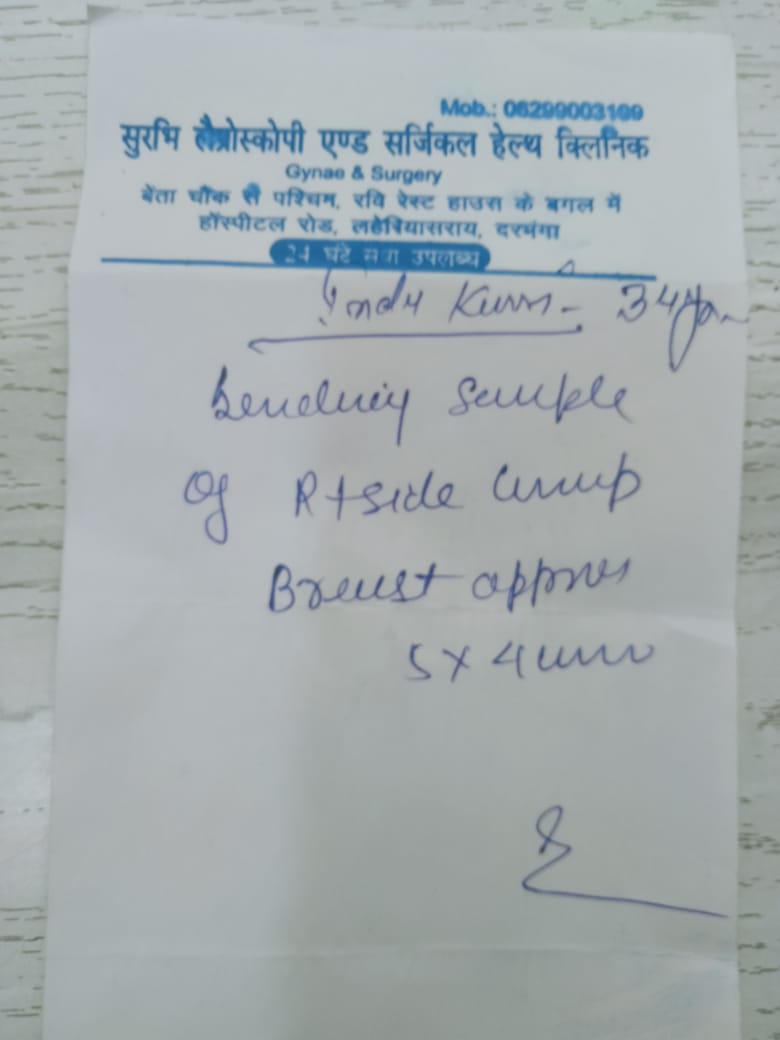 Mob.: 06299003109
सुरभि लैप्रोस्कोपी एण्ड सर्जिकल हेल्थ क्लिनिक
Gynae & Surgery
बेंता चौक से पश्चिम, रवि रेस्ट हाउस के बगल में
हॉस्पीटल रोड, लहेरियासराय, दरभंगा
24 घंटे सेवा उपलब्ध
Indu 34
Sample
Of Rt side
Breast approx
5 x 4